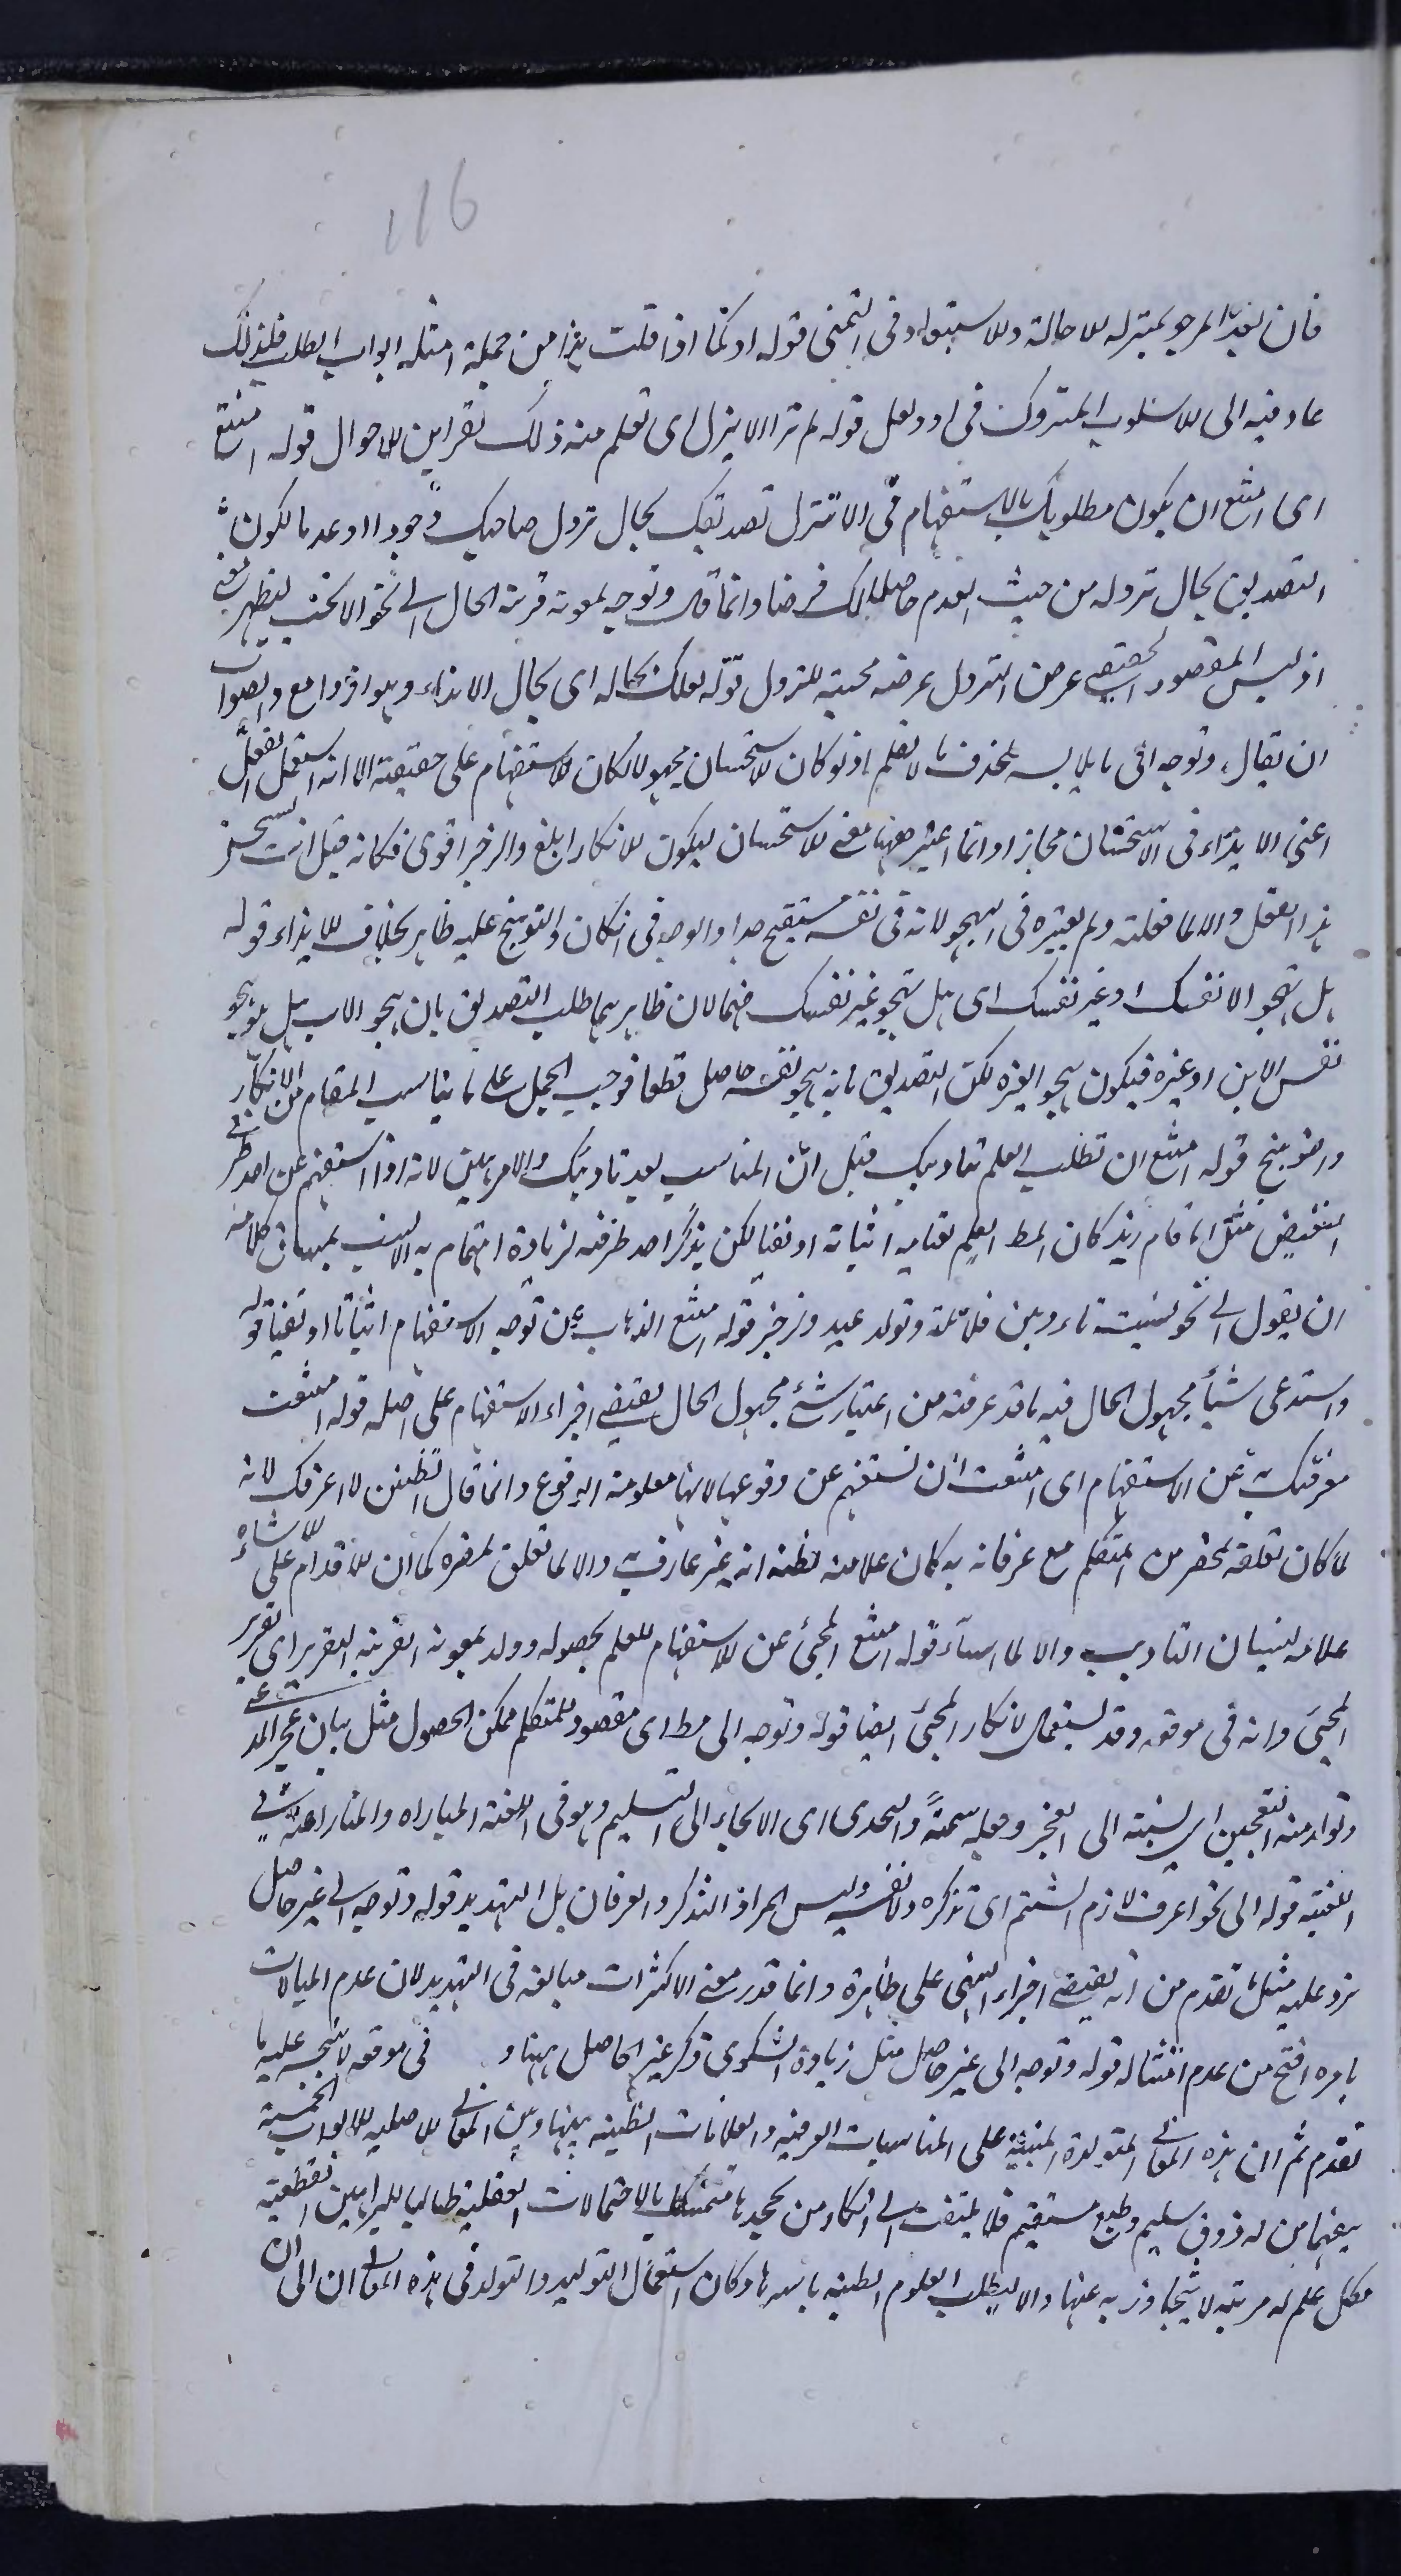 116
فان بعد المرجو بمنزله للاحالة وللاستبعاد فى التمنى قوله او كما اذا قلت هذا من جملة امثله ابواب الطلب فلذلك
عاد فيه الى الاسلوب المتروك فى او ولعل قوله لم تر الا ينزل اى تعلم منه ذلك بقراين الاحوال قوله امتنع
اى امتنع ان يكون مطلوبك بالاستفهام فى الا تنزل تصديقك بحال نزول صاحبك وجودا او عدما لكون
التصديق بحال نزوله من حيث العدم حاصلا لك فرضا وانما قال وتوجه بمعونة قرينة الحال الى نحو الا تحب ليظهر معنى
اذ ليس المقصود الحقيقى عرض النزول عرضه محبته للنزول قوله لعلك بحاله اى بحال الايذاء وهو اذ وامع والصواب
ان يقال وتوجه الى ما يلابسه بحذف ما لا يعلم اذ لو كان الاستحسان مجهولا لكان الاستفهام على حقيقته الا انه استعمل الفعل
اعنى الايذاء فى الاستحسان مجازا وانما اعتبر ههنا معنى الاستحسان ليكون الانكار ابلغ والزجر اقوى فكانه قيل انت تستحسن
هذا الفعل والا لما فعلته ولم يعتبره فى الهجو لانه فى نفسه مستقبح جدا والوجه فى انكان والتوبيخ عليه ظاهر بخلاف الايذاء قوله
هل تهجو الا نفسك او غير نفسك اى هل تهجو غير نفسك فهما لان ظاهر هما طلب التصديق بان هجو الاب هل هو هجو
نفس الابن او غيره فيكون هجو الغيره لكن التصديق بانه هجو نفسه حاصل قطعا فوجب الحمل على ما يناسب المقام من الانكار
والتوبيخ قوله امتنع ان تطلب العلم بتاديبك قيل ان المناسب بعد تاديبك والامر هين لانه اذا استفهم عن احد طرفى
النقيض مثل اما قام زيد كان المط العلم بقيامه اثباتا او نفيا لكن يذكر احد طرفيه لزيادة اهتمام به الانسب بمساق كلامه
ان يقول الى نحو نسيت تاديبى فلانا وتولد عيد وزجر قوله امتنع الذهاب عن توجه الاستفهام اثباتا او نفيا قوله
واستدعى شيأ مجهول الحال فيه ما قد عرفته من اعتبار شئ مجهول الحال يقتضى اجراء الاستفهام على اصله قوله امتنعت
معرفتك به عن الاستفهام اى امتنعت ان تستفهم عن وقوعها لانها معلومة الوقوع وانما قال اتظنن لا اعرفك لانه
لما كان تعلقه بحضر من المتكلم مع عرفانه به كان علامة لظنه انه غير عارف به والا لما تعلق بمضره كما ان الاقدام على الاساءة
علامة لنسيان التاديب والا لما اساء قوله امتنع المجئ عن الاستفهام للعلم بحصوله وولد بمعونة القرينة التقرير اى تقرير
المجئ وانه فى موقعه وقد يستعمل لانكار المجئ ايضا قوله وتوجه الى مط اى مقصود للمتكلم ممكن الحصول مثل بيان عجز المدعى
وتولد منه التعجيز اى نسبته الى العجز وجعله سمة والتحدى اى الالجاء الى التسليم وهو فى اللغة المباراه والمنازعة فى
الغلبة قوله الى نحو اعرف لازم الشتم اى تذكره ولا نفسه وليس المراد التذكر والعرفان بل التهديد قوله وتوجه الى غير حاصل
يرد عليه مثل ما تقدم من انه يقتضى اجراء النهى على ظاهره وانما قدر معنى الاكتراث مبالغه فى التهديد لان عدم المبالات
بامره اقبح من عدم امتثاله قوله وتوجه الى غير حاصل مثل زيادة الشكوى ذكر غير الحاصل ههنا و فى موقعه لا يتجه عليه ما
تقدم ثم ان هذه المعانى المتولدة المبنية على المناسبات العرفية والعلامات الظنيه بينها وبين المعانى الاصليه للابواب الخمسة
يفهمها من له ذوق سليم وطبع مستقيم فلا يلتفت الى انكار من يجحدها متمسكا بالاحتمالات العقلية طالبا للبراهين القطعية
فكل علم له مرتبه لا يتجاوز به عنها والا ليطلب العلوم الظنية باسرها وكان استعمال التوليد والتولد فى هذه المعانى ان الى ان